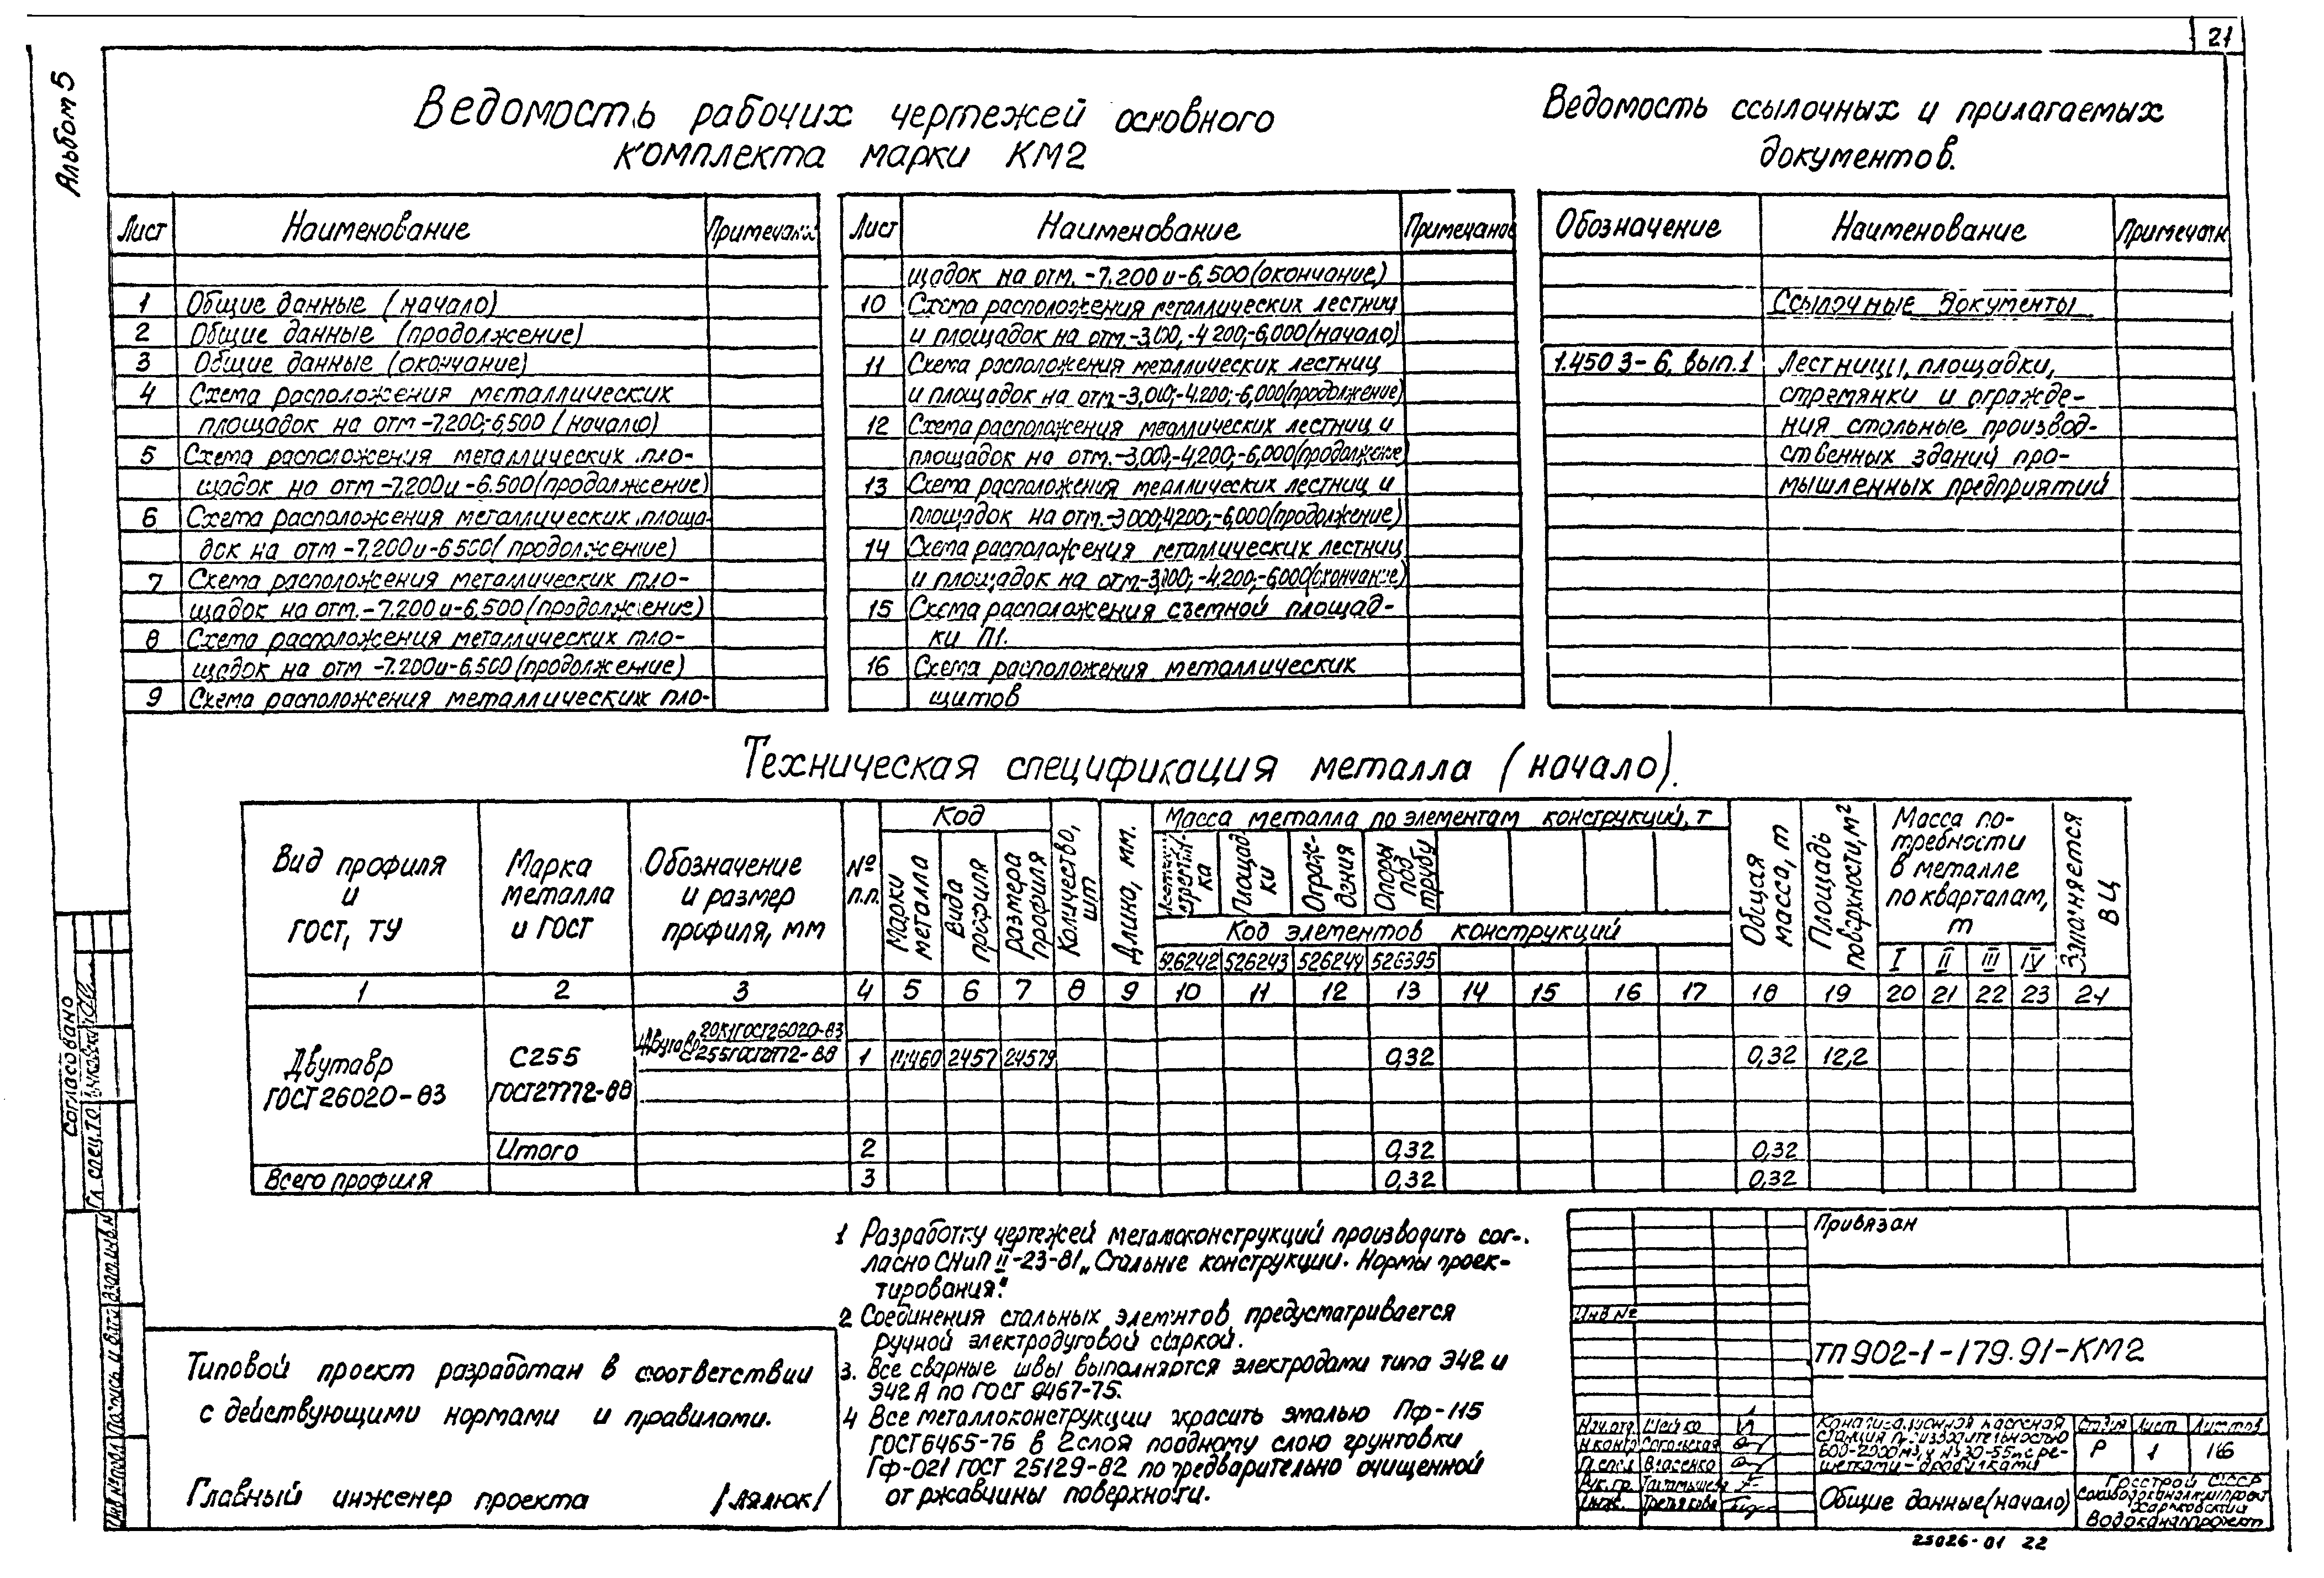 21
Альбом 5
Ведомость рабочих чертежей основного
комплекта марки КМ2
Лист Наименование Примечани
1 Общие данные (начало)
2 Общие данные (продолжение)
3 Общие данные (окончание)
4 Схема расположения металлических
площадок на отм -7,200;-6,500 (начало)
5 Схема расположения металлических пло-
щадок на отм -7,200 и -6.500 (продолжение)
6 Схема расположения металлических площа-
док на отм -7,200 и -6500 (продолжение)
7 Схема расположения металлических пло-
щадок на отм. -7.200 и -6,500 (продолжение)
8 Схема расположения металлических пло-
щадок на отм -7.200 и -6,500 (продолжение)
9 Схема расположения металлических пло-
Лист Наименование Примечание
щадок на отм. -7.200 и -6,500 (окончание)
10 Схема расположения металлических лестниц
и площадок на отм.-3,000,-4 200;-6,000 (начало)
11 Схема расположения металлических лестниц
и площадок на отм-3,000;-4.200;-6,000 (продолжение)
12 Схема расположения металлических лестниц и
площадок на отм.-3,000,-4,200,-6,000 (продолжение)
13 Схема расположения металлических лестниц и
площадок на отм.-3 000,4200,-6,000 (продолжение)
14 Схема расположения металлических лестниц
и площадок на отм-3,000;-4.200,-6,000 (окончание)
15 Схема расположения съемной площад-
ки П1.
16 Схема расположения металлических
щитов
Ведомость ссылочных и прилагаемых
документов.
Обозначение Наименование Примечан
Ссылочные документы
1.450 3-6, вып.1 Лестницы, площадки,
стремянки и огражде-
ния стальные производ-
ственных зданий про-
мышленных предприятий
Техническая спецификация металла (начало).
Вид профиля и ГОСТ, ТУ
Марка металла и ГОСТ
Обозначение и размер профиля, мм
№ п.п.
Код
Марки металла
Вида профиля
Размера профиля
Количество, шт
Длина, мм.
Масса металла по элементам конструкций, т
Площадки
Ограждения
Опоры под трубу
Код элементов конструкций
526242 526243 526244 526395
Общая масса, т
Площадь поверхности, м²
Масса потребности в металле по кварталам, т
I II III IV
Заполняется ВЦ
1 2 3 4 5 6 7 8 9 10 11 12 13 14 15 16 17 18 19 20 21 22 23 24
Двутавр
ГОСТ 26020-83
С255
ГОСТ27772-88
Двутавр 20К1 ГОСТ26020-83
С255 ГОСТ27772-88
1 2457 24579 0,32 0,32 12,2
Итого 2 0,32 0,32
Всего профиля 3 0,32 0,32
1 Разработку чертежей металлоконструкций производить сог-
ласно СНиП II-23-81 „Стальные конструкции. Нормы проек-
тирования."
2 Соединения стальных элементов предусматривается
ручной электродуговой сваркой.
3. Все сварные швы выполняются электродами типа Э42 и
Э42 А по ГОСТ 9467-75.
4 Все металлоконструкции красить эмалью ПФ-115
ГОСТ 6465-76 в 2 слоя по одному слою грунтовки
ГФ-021 ГОСТ 25129-82 по предварительно очищенной
от ржавчины поверхности.
Типовой проект разработан в соответствии
с действующими нормами и правилами.
Главный инженер проекта /Лялюк/
Согласовано
Гл спец.ТО
Инв № подл Подпись и дата Взам.инв.№
Привязан
Инв №
ТП 902-1-179.91-КМ2
Нач.отд. Шейко
Н контр Сокольская
Гл спец. Власенко
Рук. гр.
Инж. Третьякова
Канализационная насосная
станция производительностью
решетками-дробилками
Стадия Лист Листов
Р 1 16
Общие данные (начало)
Госстрой СССР
Союзводоканалниипроект
Харьковский
Водоканалпроект
25026-01 22